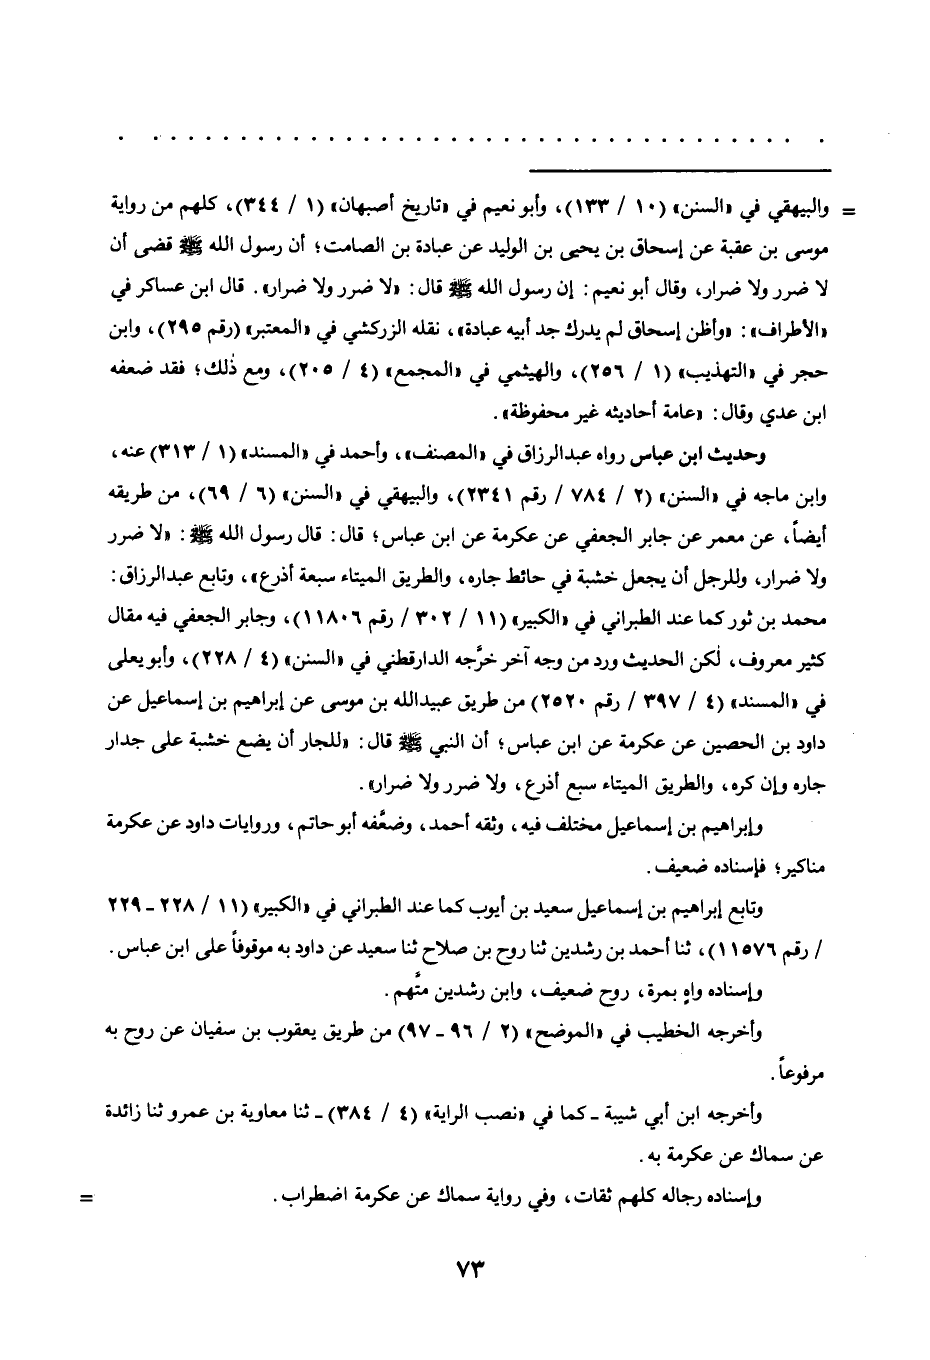 = والبيهقي في «السنن» (١٠ / ١٣٣)، وأبو نعيم في «تاريخ أصبهان» (١ / ٣٤٤)، كلهم من رواية
موسى بن عقبة عن إسحاق بن يحيى بن الوليد عن عبادة بن الصامت؛ أن رسول الله ﷺ قضى أن
لا ضرر ولا ضرار، وقال أبو نعيم: إن رسول الله ﷺ قال: «لا ضرر ولا ضرار». قال ابن عساكر في
«الأطراف»: «وأظن إسحاق لم يدرك جد أبيه عبادة»، نقله الزركشي في «المعتبر» (رقم ٢٩٥)، وابن
حجر في «التهذيب» (١ / ٢٥٦)، والهيثمي في «المجمع» (٤ / ٢٠٥)، ومع ذٰلك؛ فقد ضعفه
ابن عدي وقال: «عامة أحاديثه غير محفوظة».
وحديث ابن عباس رواه عبدالرزاق في «المصنف»، وأحمد في «المسند» (١ / ٣١٣) عنه،
وابن ماجه في «السنن» (٢ / ٧٨٤ / رقم ٢٣٤١)، والبيهقي في «السنن» (٦ / ٦٩)، من طريقه
أيضاً، عن معمر عن جابر الجعفي عن عكرمة عن ابن عباس؛ قال: قال رسول الله ﷺ: «لا ضرر
ولا ضرار، وللرجل أن يجعل خشبة في حائط جاره، والطريق الميتاء سبعة أذرع»، وتابع عبدالرزاق:
محمد بن ثور كما عند الطبراني في «الكبير» (١١ / ٣٠٢ / رقم ١١٨٠٦)، وجابر الجعفي فيه مقال
كثير معروف، لٰكن الحديث ورد من وجه آخر خرَّجه الدارقطني في «السنن» (٤ / ٢٢٨)، وأبو يعلى
في «المسند» (٤ / ٣٩٧ / رقم ٢٥٢٠) من طريق عبيدالله بن موسى عن إبراهيم بن إسماعيل عن
داود بن الحصين عن عكرمة عن ابن عباس؛ أن النبي ﷺ قال: «للجار أن يضع خشبة على جدار
جاره وإن كره، والطريق الميتاء سبع أذرع، ولا ضرر ولا ضرار».
وإبراهيم بن إسماعيل مختلف فيه، وثقه أحمد، وضعَّفه أبو حاتم، وروايات داود عن عكرمة
مناكير؛ فإسناده ضعيف.
وتابع إبراهيم بن إسماعيل سعيد بن أيوب كما عند الطبراني في «الكبير» (١١ / ٢٢٨ ـ ٢٢٩
/ رقم ١١٥٧٦)، ثنا أحمد بن رشدين ثنا روح بن صلاح ثنا سعيد عن داود به موقوفاً على ابن عباس.
وإسناده واهٍ بمرة، روح ضعيف، وابن رشدين متَّهم.
وأخرجه الخطيب في «الموضح» (٢ / ٩٦ ـ ٩٧) من طريق يعقوب بن سفيان عن روح به
مرفوعاً.
وأخرجه ابن أبي شيبة ـ كما في «نصب الراية» (٤ / ٣٨٤) ـ ثنا معاوية بن عمرو ثنا زائدة
عن سماك عن عكرمة به.
وإسناده رجاله كلهم ثقات، وفي رواية سماك عن عكرمة اضطراب. =
٧٣